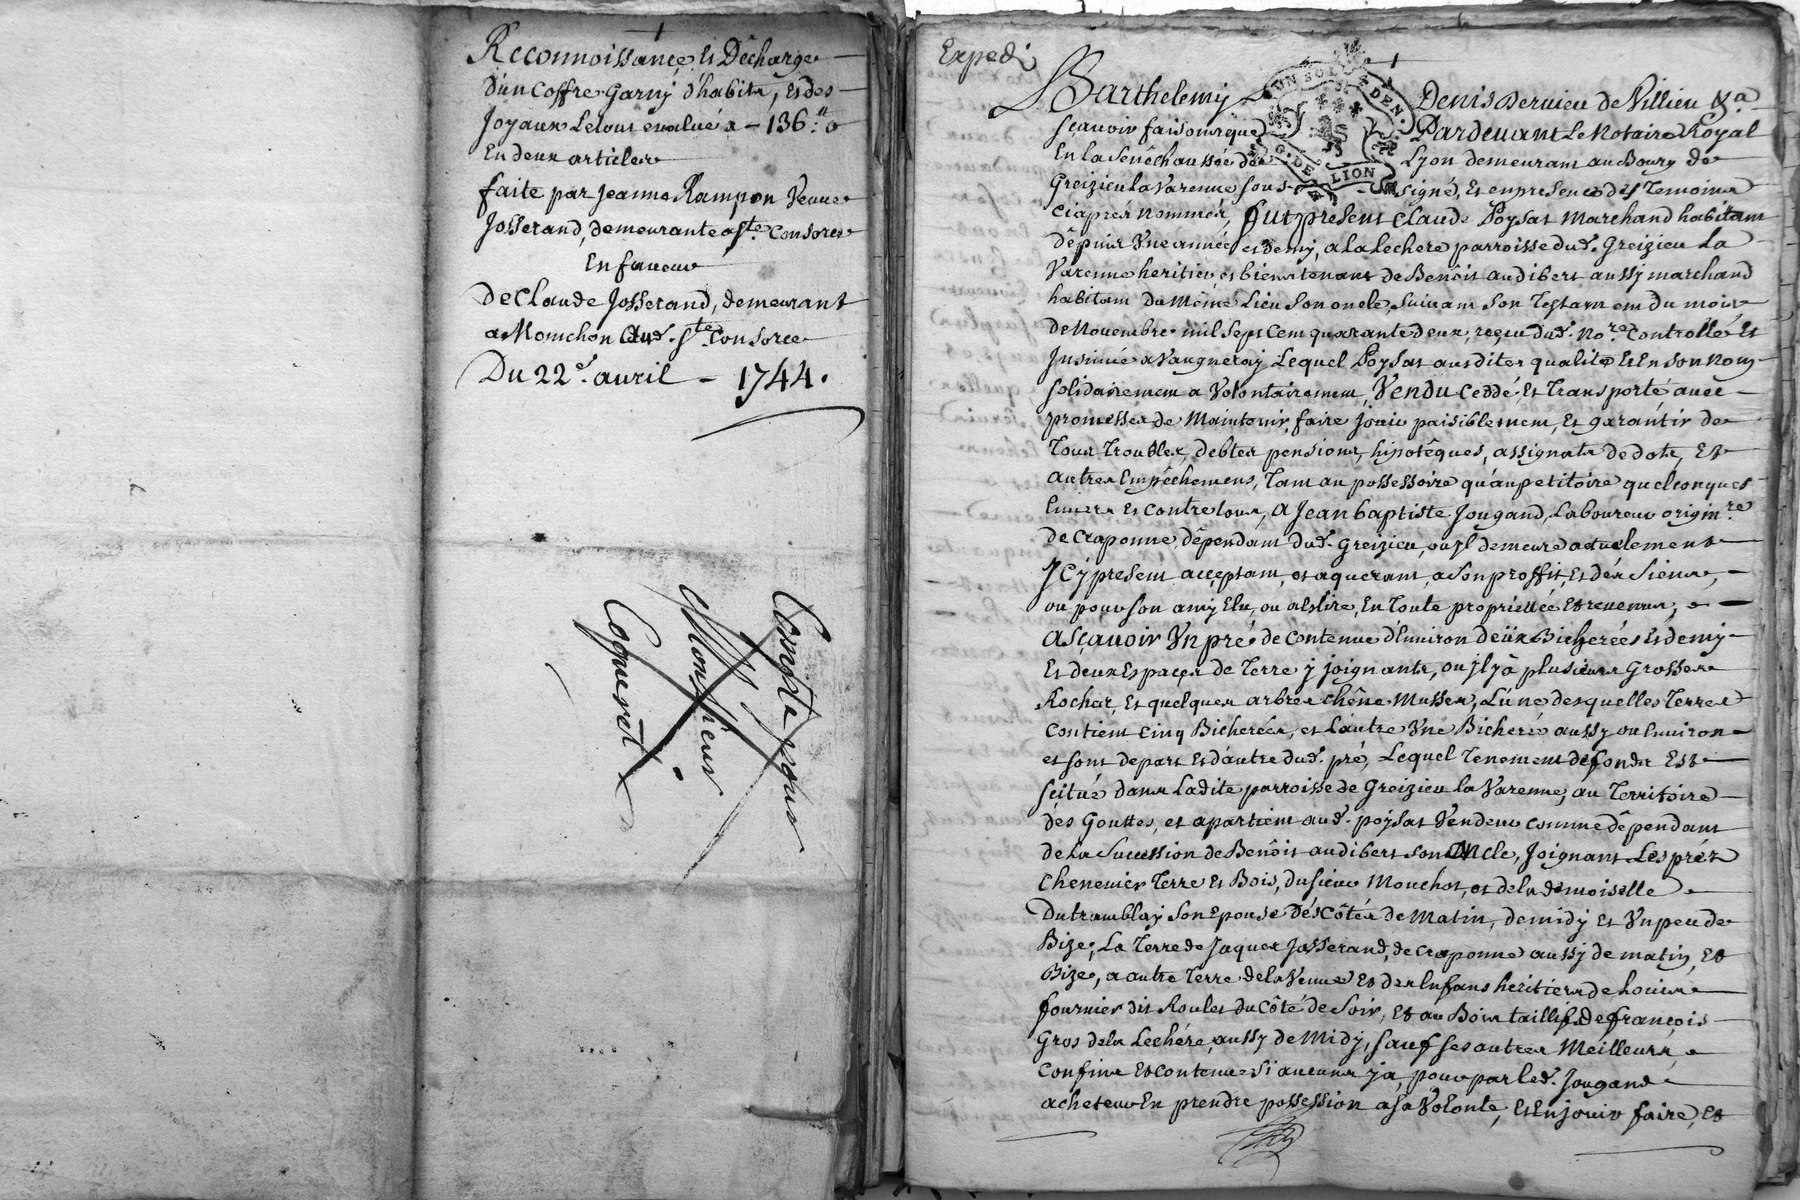 Reconnoissance et Décharge
d'un Coffre garnj d'habits, et des
Joyaux Le tout evalué a - 136.ₗₗ 0
En deux articles
faite par Jeanne Rampon Veuve
Josserand, demeurante a Ste. Consorce
En faveur
de Claude Josserand, demeurant
a Monchon aud. Ste Consorce
Du 22e. avril - 1744.
Compte pour
Monsieur
Coqueret
Exped.
Barthelemÿ Denis Dervieu de Villieu &a
UN SOL DEN.
G. DE LION
sçavoir faisons que Pardevant Le Notaire Royal
En la Sénéchaussée de Lyon demeurant au Bourg de
Greizieu la Varenne sous-signé, et en presence des Temoins
ci après nommés, fut present Claude Poÿsat Marchand habitant
dêpuis Vne année et demÿ, a La Lechere parroisse dud. Greizieu La
Varenne heritier et bientenant de Benôit audibert aussÿ marchand
habitant du Même Lieu Son oncle, Suivant Son Testament du mois
de Novembre mil Sept Cent quarante deux, reçeu dud. No.re Controllé et
Insinué a Vaugneraÿ Lequel Poÿsat ausdites qualités et En son nom
solidairement a Volontairement, Vendu Ceddé, et Transporté avec
promesses de Maintenir, faire Jouir paisiblement, Et garantir de
Tous Troubles, debtes pensions, hipotêques, assignats de dots, Et
autres Empêchemens, Tant au possessoire qu'au petitoire quelconques
Envers et contre tous, a Jean baptiste Jougand, Laboureur origin.re
de Craponne, dépendant dud. Greizieu, ou Jl demeure actuelement
Jcÿ present acceptant, et aquerant, a Son proffit, et des Siens,
ou pour son amÿ Elu, ou a Eslire, En Toute propriettée et revenus,
asçavoir Vn pré de contenue d'Environ deüx Bicherées et demÿ
Et deux Espaces de Terre ÿ joignants, ou jl ÿ a plusieurs Grosses
Rochers, Et quelques arbres chêne Musses, L'une desquelles Terres
Contient Cinq Bicherées, et L'autre Vne Bicherée aussÿ ou Environ
et sont de part Et d'autre dud. pré, Lequel Tenement de fonds Est
Scitué dans Ladite parroisse de Greizieu la Varenne, au Territoire
des Gouttes, et apartient aud. poÿsat Vendeur comme dépendant
de la Succession de Benôit audibert son oncle, Joignant Les prés
Chenevier Terre et Bois, du sieur Mouchot, et de la demoiselle
Dutramblaÿ Son Epouse Dés Côtés de Matin, de midÿ et Vn peu de
Bize, La Terre de Jaques Josserand, de Craponne aussÿ de matin, Et
Bize, a autre Terre de la Veuve Et des Enfans héritiers de Louis
fournier dit Roulet du Côté de Soir, Et au Bois taillifs de françois
Gros de la Lechére, aussÿ de Midÿ, sauf ses autres Meilleurs,
Confins et contenue si aucuns ÿ a, pour par Led. Jougand
acheteur En prendre possession a sa Volonté, Et En jouir faire, Et